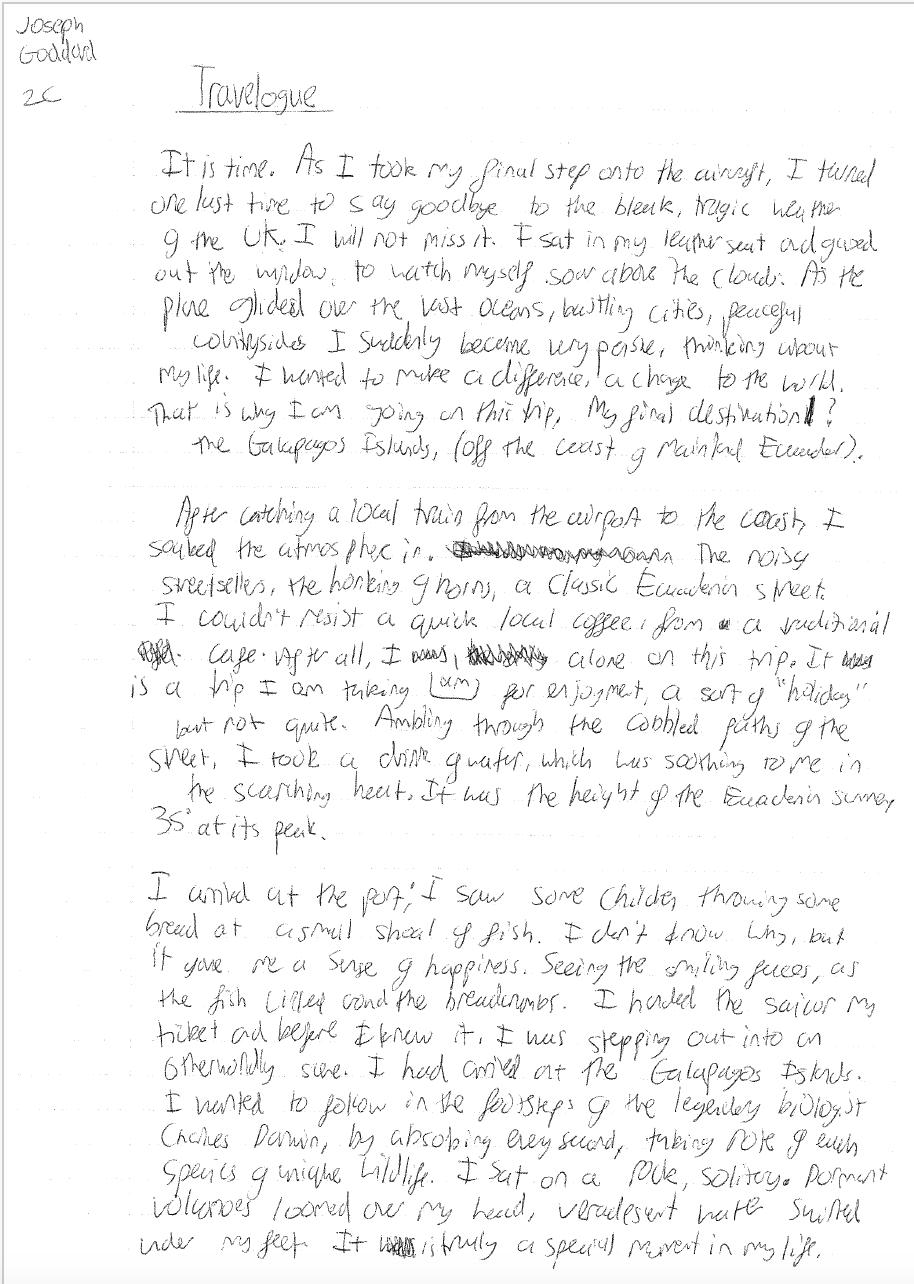 Joseph
Goddard
2C
Travelogue
It is time. As I took my final step onto the aircraft, I turned
one last time to say goodbye to the bleak, tragic weather
of the UK. I will not miss it. I sat in my leather seat and gazed
out the window, to watch myself soar above the clouds. As the
plane glided over the vast oceans, bustling cities, peaceful
countrysides I suddenly became very pensive, thinking about
my life. I wanted to make a difference, a change to the world.
That is why I am going on this trip. My final destination?
the Galapagos Islands, (off the coast of Mainland Ecuador).
After catching a local train from the airport to the coast, I
soaked the atmosphere in. The noisy
streetsellers, the honking of horns, a Classic Ecuadorian street.
I couldn't resist a quick local coffee, from a traditional
cafe. After all, I alone on this trip. It
is a trip I am taking (am) for enjoyment, a sort of "holiday"
but not quite. Ambling through the cobbled paths of the
street, I took a drink of water, which was soothing to me in
the scorching heat. It was the height of the Ecuadorian summer,
35° at its peak.
I arrived at the port; I saw some children throwing some
bread at a small shoal of fish. I don't know why, but
it gave me a sense of happiness. Seeing the smiling faces, as
the fish circled the breadcrumbs. I handed the sailor my
ticket and before I knew it, I was stepping out into an
otherworldly scene. I had arrived at the Galapagos Islands.
I wanted to follow in the footsteps of the legendary biologist
Charles Darwin, by absorbing every second, taking note of each
species of unique wildlife. I sat on a rock, solitary. Dormant
volcanoes loomed over my head, water swirled
under my feet. It is truly a special moment in my life.